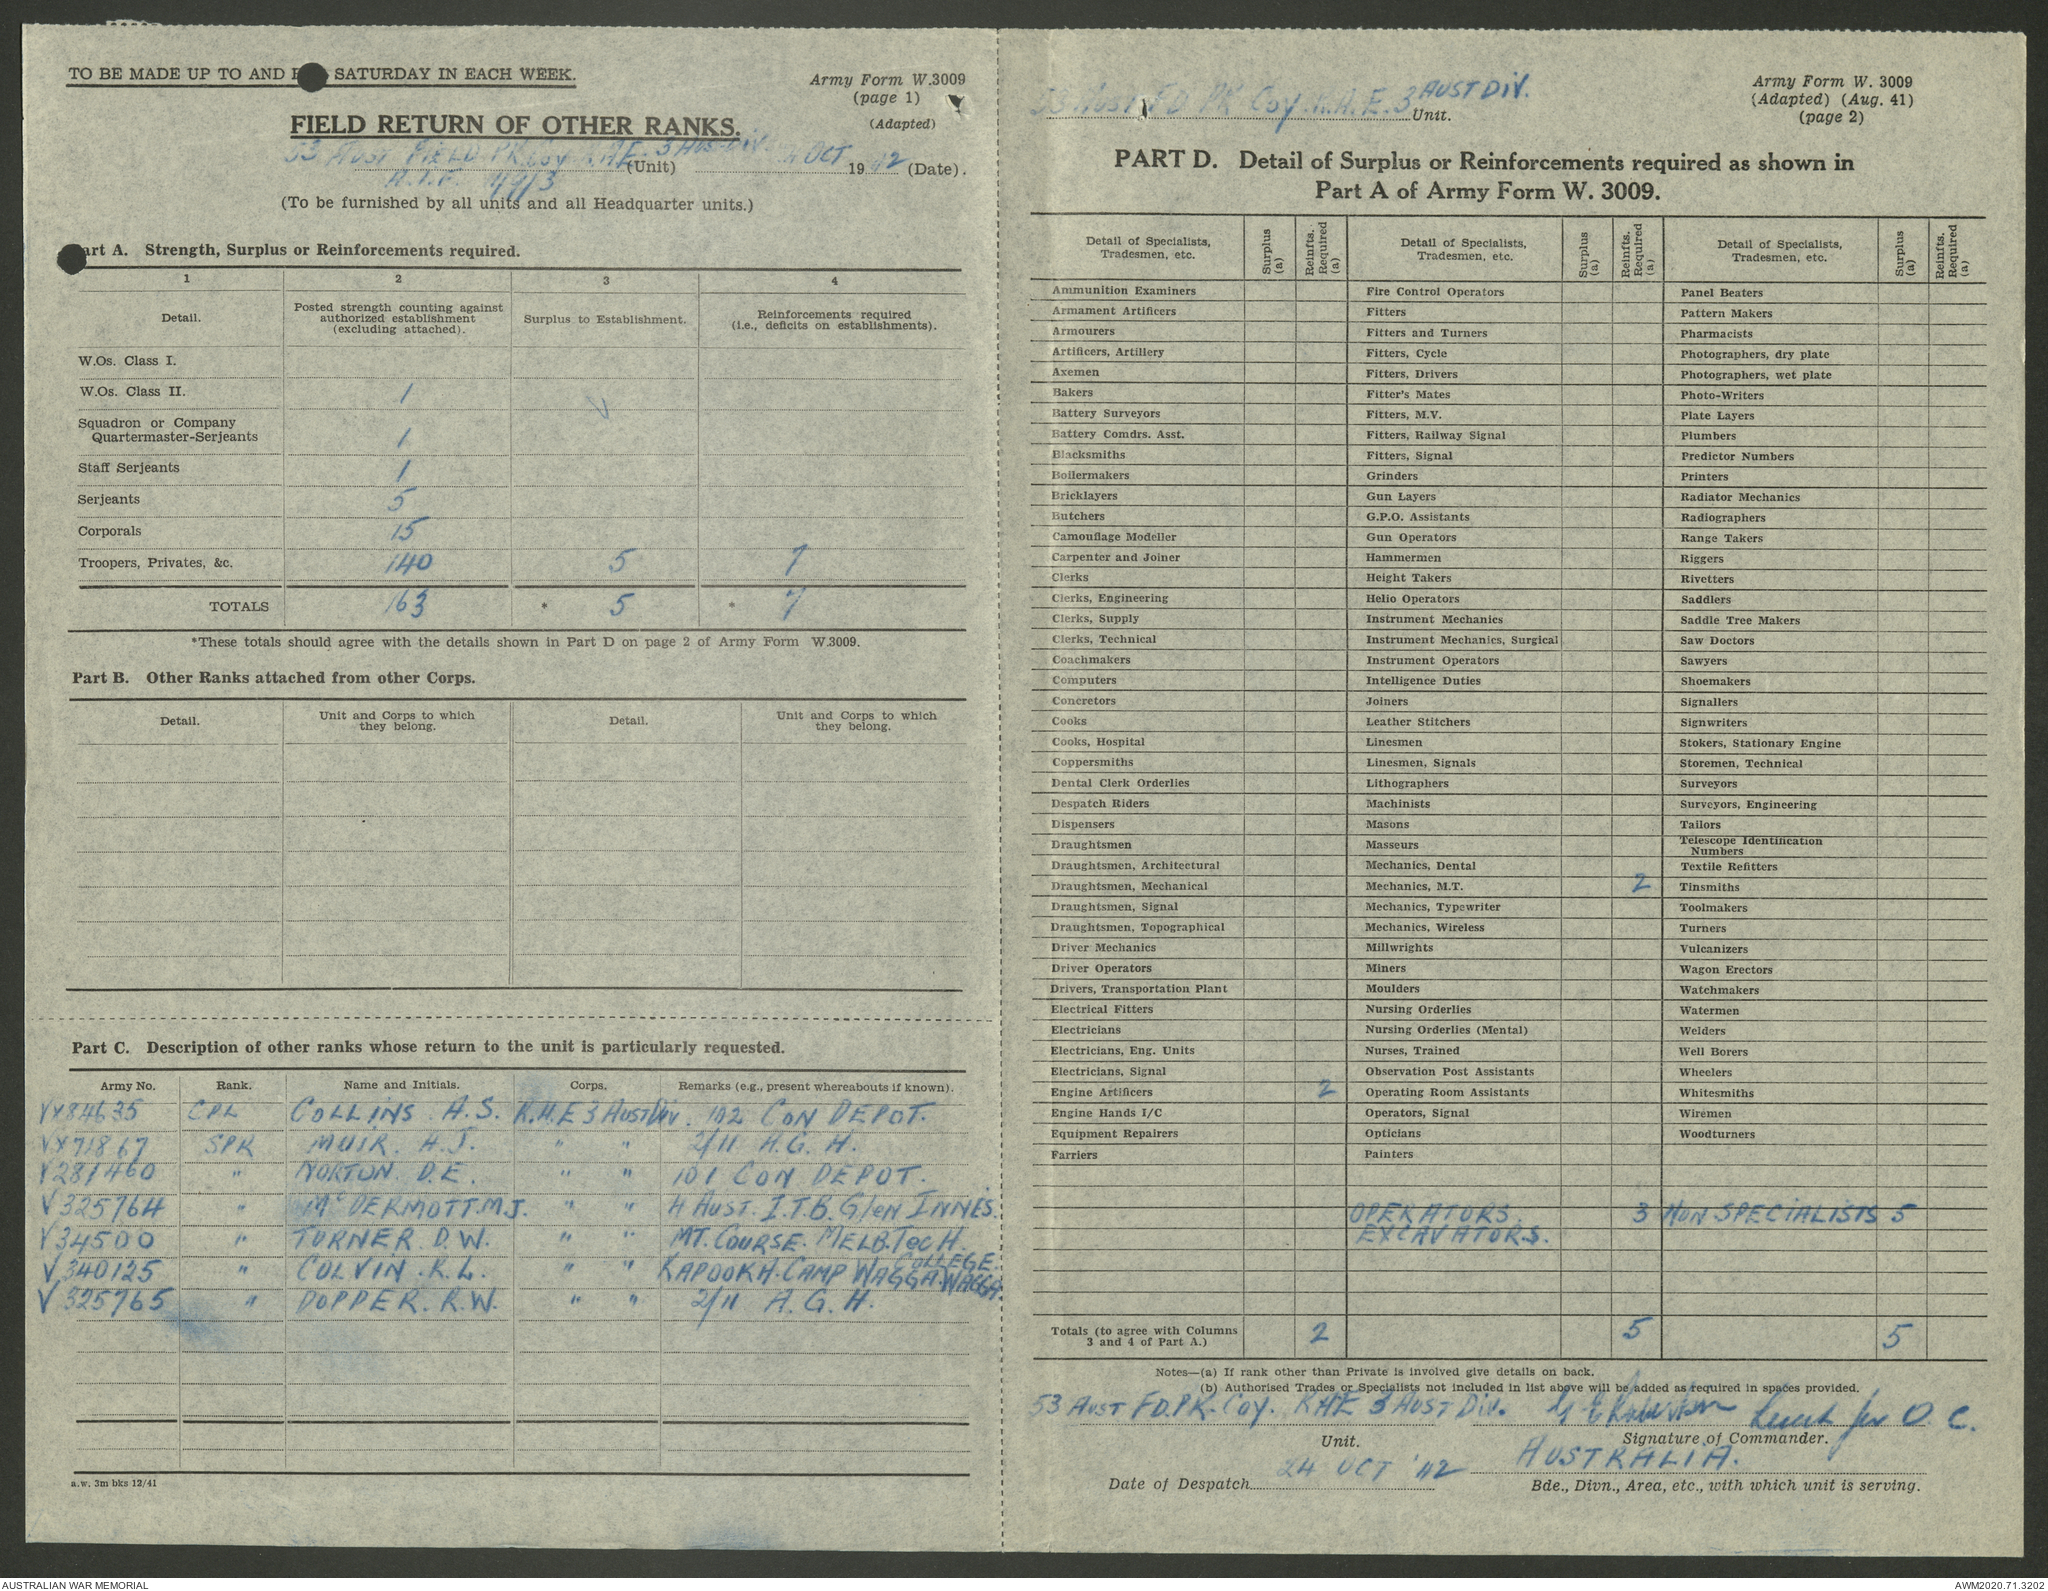 TO BE MADE UP TO AND SATURDAY IN EACH WEEK.
Army Form W.3009
(page 1)
(Adapted)
FIELD RETURN OF OTHER RANKS.
53 AUST FIELD PK. Coy R.A.E. 3 AUST DIV. (Unit) OCT 1942 (Date).
A.I.F.
(To be furnished by all units and all Headquarter units.)
art A. Strength, Surplus or Reinforcements required.
1 2 3 4
Detail. Posted strength counting against authorized establishment (excluding attached). Surplus to Establishment. Reinforcements required (i.e., deficits on establishments).
W.Os. Class I.
W.Os. Class II. 1
Squadron or Company
Quartermaster-Serjeants 1
Staff Serjeants 1
Serjeants 5
Corporals 15
Troopers, Privates, &c. 140 5 7
TOTALS 163 * 5 * 7
*These totals should agree with the details shown in Part D on page 2 of Army Form W.3009.
Part B. Other Ranks attached from other Corps.
Detail. Unit and Corps to which they belong. Detail. Unit and Corps to which they belong.
Part C. Description of other ranks whose return to the unit is particularly requested.
Army No. Rank. Name and Initials. Corps. Remarks (e.g., present whereabouts if known).
VX84635 CPL COLLINS A.S. R.A.E 3 AUST DIV. 102 CON DEPOT.
VX71867 SPR MUIR. A.J. " " 2/11 A.G.H.
V281460 " NORTON. D.E. " " 101 CON DEPOT.
V325764 " McDERMOTT. M.J. " " 4 AUST. I.T.B. Glen INNES.
V34500 " TURNER. D.W. " " MT. COURSE. MELB. TecH. COLLEGE.
V340125 " COLVIN. R.L. " " KAPOOKA. CAMP WAGGA. WAGGA.
V325765 " DOPPER. R.W. " " 2/11 A.G.H.
a.w. 3m bks 12/41
53 AUST FD PK Coy. R.A.E. 3 AUST DIV. Unit.
Army Form W. 3009
(Adapted) (Aug. 41)
(page 2)
PART D. Detail of Surplus or Reinforcements required as shown in
Part A of Army Form W. 3009.
Detail of Specialists, Tradesmen, etc. Surplus (a) Reinfts. Required (a) Detail of Specialists, Tradesmen, etc. Surplus (a) Reinfts. Required (a) Detail of Specialists, Tradesmen, etc. Surplus (a) Reinfts. Required (a)
Ammunition Examiners Fire Control Operators Panel Beaters
Armament Artificers Fitters Pattern Makers
Armourers Fitters and Turners Pharmacists
Artificers, Artillery Fitters, Cycle Photographers, dry plate
Axemen Fitters, Drivers Photographers, wet plate
Bakers Fitter's Mates Photo-Writers
Battery Surveyors Fitters, M.V. Plate Layers
Battery Comdrs. Asst. Fitters, Railway Signal Plumbers
Blacksmiths Fitters, Signal Predictor Numbers
Boilermakers Grinders Printers
Bricklayers Gun Layers Radiator Mechanics
Butchers G.P.O. Assistants Radiographers
Camouflage Modeller Gun Operators Range Takers
Carpenter and Joiner Hammermen Riggers
Clerks Height Takers Rivetters
Clerks, Engineering Helio Operators Saddlers
Clerks, Supply Instrument Mechanics Saddle Tree Makers
Clerks, Technical Instrument Mechanics, Surgical Saw Doctors
Coachmakers Instrument Operators Sawyers
Computers Intelligence Duties Shoemakers
Concretors Joiners Signallers
Cooks Leather Stitchers Signwriters
Cooks, Hospital Linesmen Stokers, Stationary Engine
Coppersmiths Linesmen, Signals Storemen, Technical
Dental Clerk Orderlies Lithographers Surveyors
Despatch Riders Machinists Surveyors, Engineering
Dispensers Masons Tailors
Draughtsmen Masseurs Telescope Identification Numbers
Draughtsmen, Architectural Mechanics, Dental Textile Refitters
Draughtsmen, Mechanical Mechanics, M.T. 2 Tinsmiths
Draughtsmen, Signal Mechanics, Typewriter Toolmakers
Draughtsmen, Topographical Mechanics, Wireless Turners
Driver Mechanics Millwrights Vulcanizers
Driver Operators Miners Wagon Erectors
Drivers, Transportation Plant Moulders Watchmakers
Electrical Fitters Nursing Orderlies Watermen
Electricians Nursing Orderlies (Mental) Welders
Electricians, Eng. Units Nurses, Trained Well Borers
Electricians, Signal Observation Post Assistants Wheelers
Engine Artificers 2 Operating Room Assistants Whitesmiths
Engine Hands I/C Operators, Signal Wiremen
Equipment Repairers Opticians Woodturners
Farriers Painters
OPERATORS. 3 NON SPECIALISTS 5
EXCAVATORS.
Totals (to agree with Columns 3 and 4 of Part A.) 2 5 5
Notes—(a) If rank other than Private is involved give details on back.
(b) Authorised Trades or Specialists not included in list above will be added as required in spaces provided.
53 AUST FD. PK. Coy. RAE 3 AUST DIV. Lieut for O.C.
Unit. Signature of Commander.
24 OCT '42 AUSTRALIA.
Date of Despatch Bde., Divn., Area, etc., with which unit is serving.
AUSTRALIAN WAR MEMORIAL AWM2020.71.3202